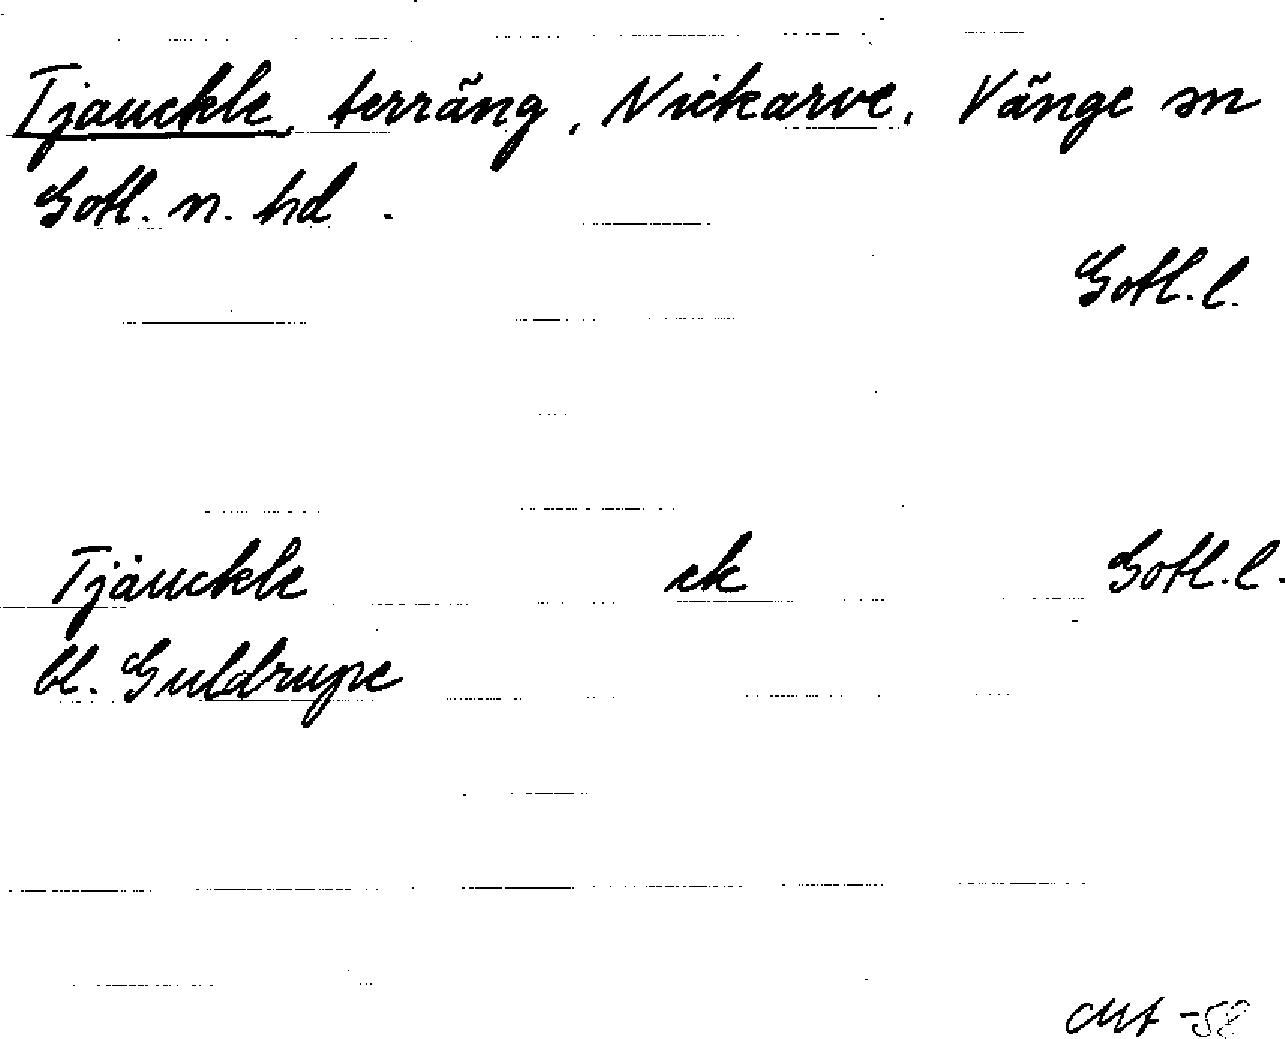 Tjauckle, terräng, Nickarve, Vänge sn
Gotl. n. hd.
Gotl. l.
Tjäuckle ek Gotl. l.
bl. Guldrupe
-58